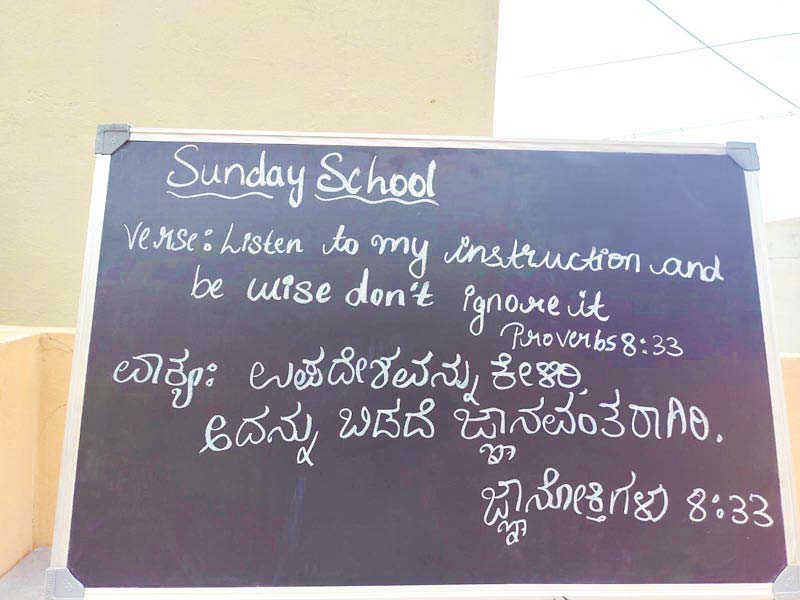 Sunday School
Verse: Listen to my instruction and
be wise don't ignore it
Proverbs 8:33
ವಾಕ್ಯ: ಉಪದೇಶವನ್ನು ಕೇಳಿರಿ,
ಅದನ್ನು ಬಿಡದೆ ಜ್ಞಾನವಂತರಾಗಿರಿ.
ಜ್ಞಾನೋಕ್ತಿಗಳು 8:33